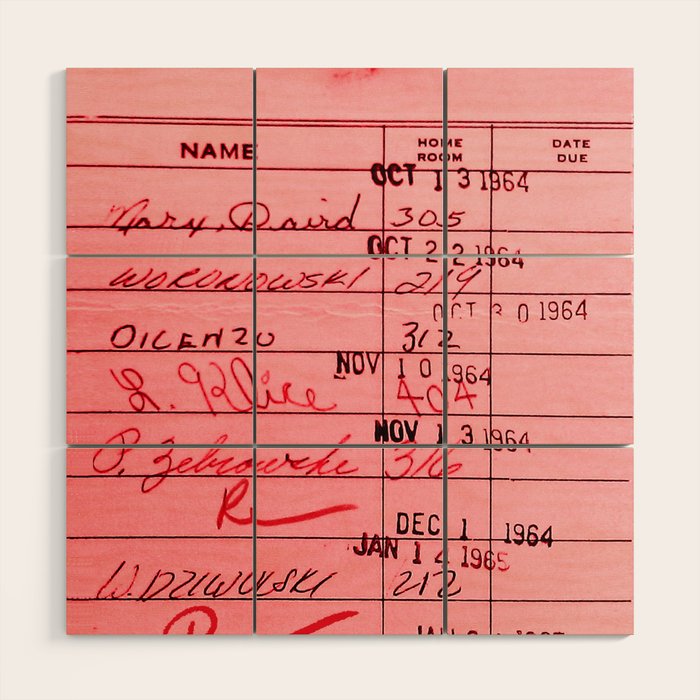 NAME HOME ROOM DATE DUE
OCT 13 1964
Mary, Daird 305
OCT 22 1964
WORONOWSKI 219
OCT 30 1964
OICENZO 312
NOV 10 1964
L. Klice 404
NOV 13 1964
P. Zebrowske 316
R
DEC 1 1964
JAN 14 1965
W. DZIWULSKI 212
R